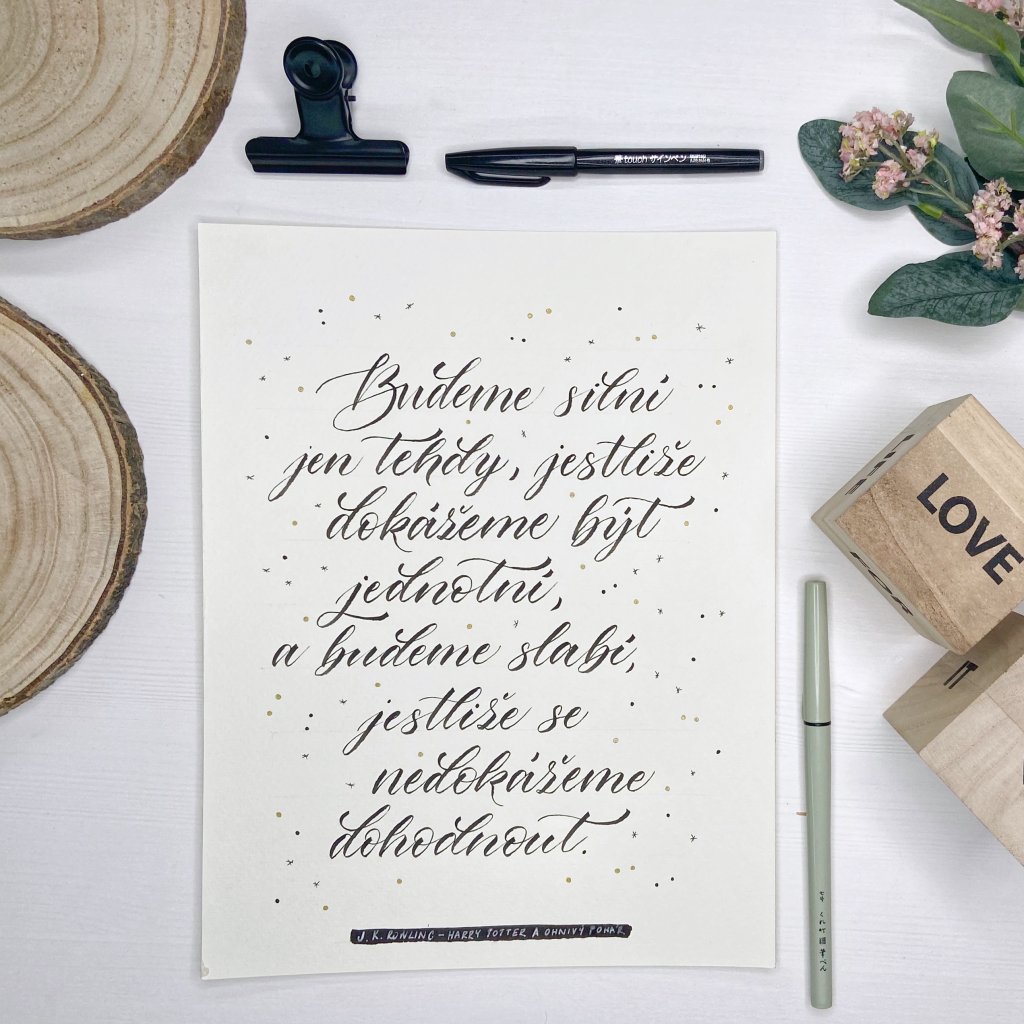 touch サインペン
Budeme silní
jen tehdy, jestliže
dokážeme být
jednotní,
a budeme slabí,
jestliže se
nedokážeme
dohodnout.
J. K. ROWLING – HARRY POTTER A OHNIVÝ POHÁR
LOVE
FOR
IT
くれ竹 筆ぺん